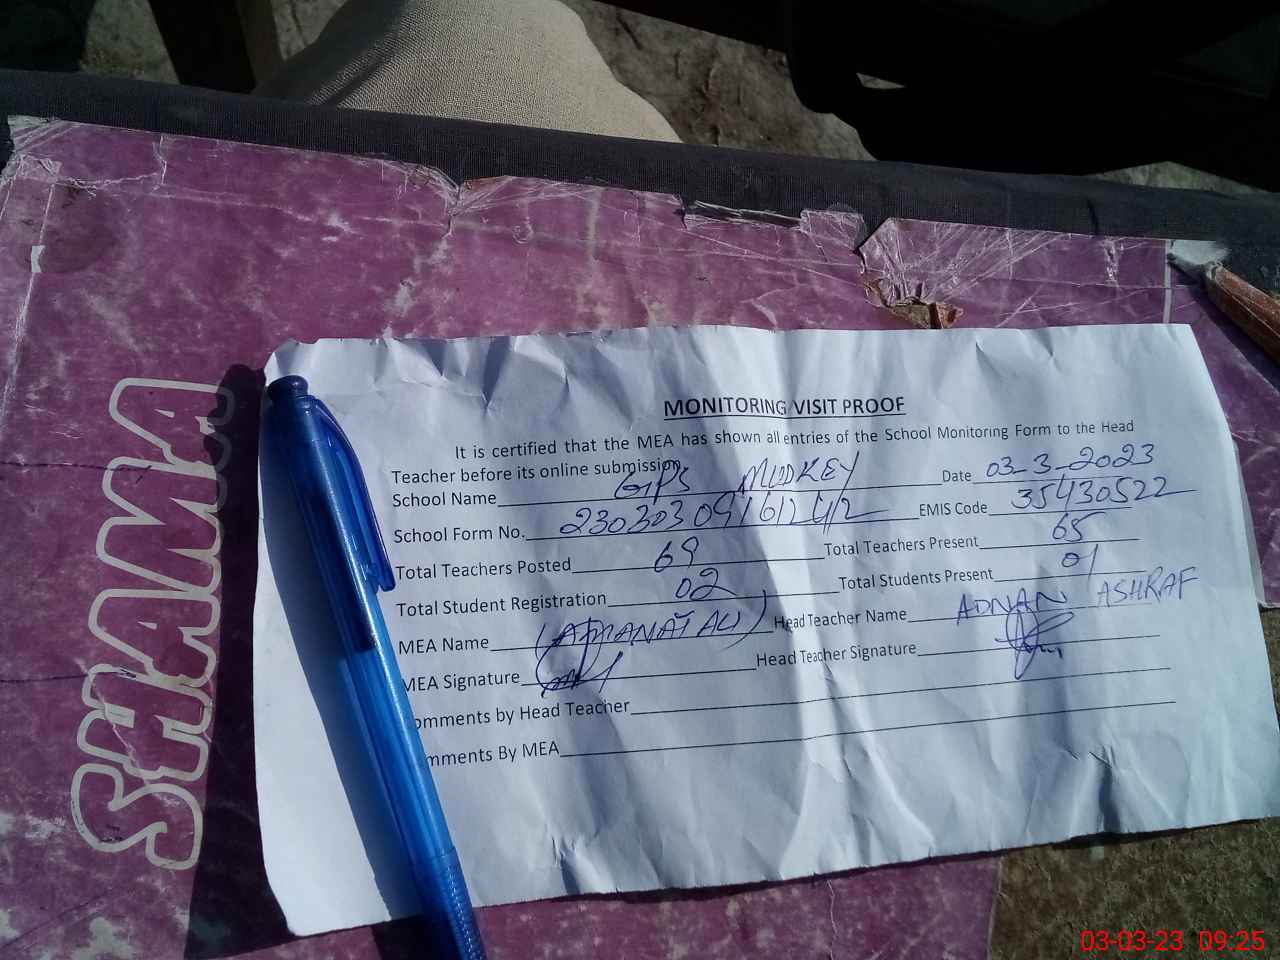 SHAMA
MONITORING VISIT PROOF
It is certified that the MEA has shown all entries of the School Monitoring Form to the Head
Teacher before its online submission.
School Name GPS MUDKEY Date 03-3-2023
School Form No. 230303091612442 EMIS Code 35430522
Total Teachers Posted 69 Total Teachers Present 65
Total Student Registration 02 Total Students Present 01
MEA Name (AMANAT ALI) Head Teacher Name ADNAN ASHRAF
MEA Signature Head Teacher Signature
omments by Head Teacher
mments By MEA
03-03-23 09:25